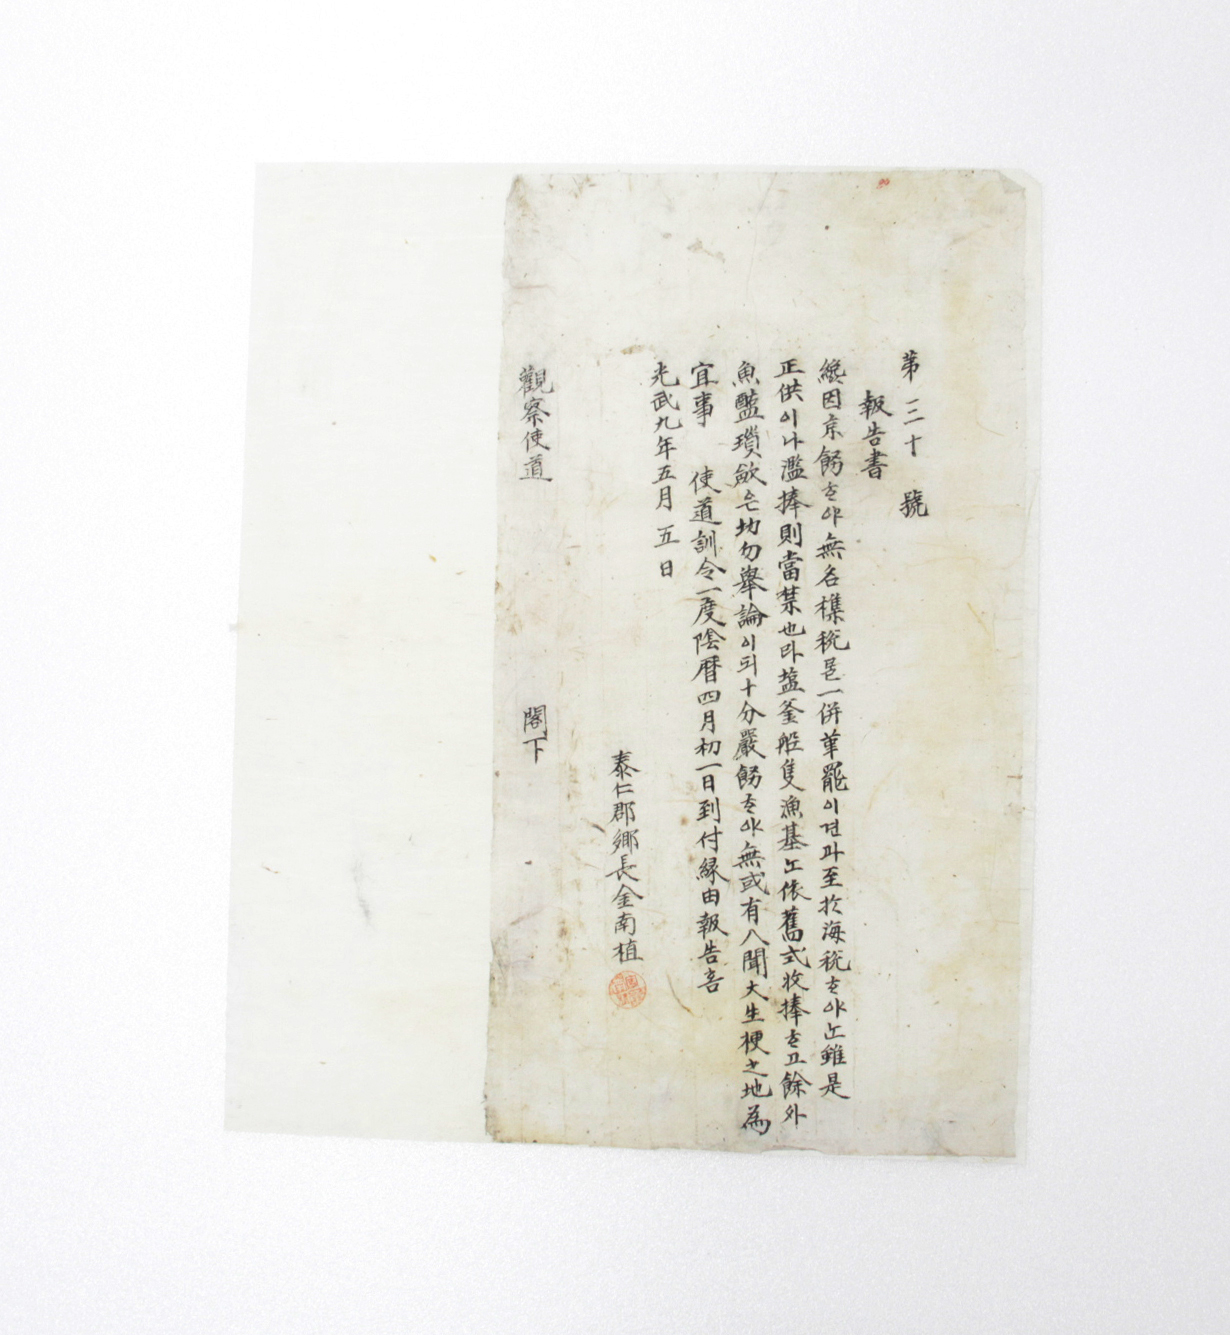 第三十 號
報告書
纔因京飭ᄒᆞ야無名襍稅을一併革罷이건과至於海稅ᄒᆞ야ᄂᆞᆫ雖是
正供이나濫捧則當禁也라塩釜船隻漁基ᄂᆞᆫ依舊式收捧ᄒᆞ고餘外
魚鹽瑣歛은切勿擧論이되十分嚴飭ᄒᆞ야無或有入聞大生梗之地為
宜事 使道訓令一度陰曆四月初一日到付緣由報告喜
光武九年五月 五 日
泰仁郡鄕長金南植
觀察使道 閣下